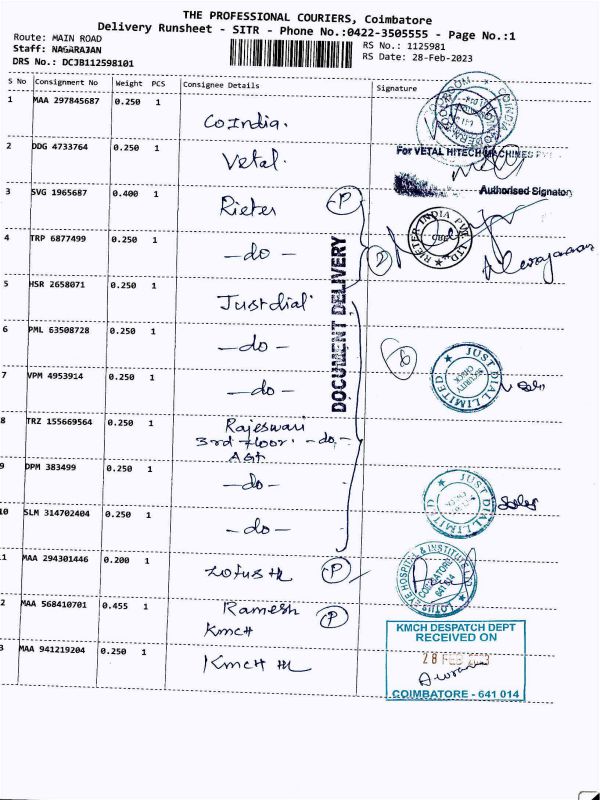 THE PROFESSIONAL COURIERS, Coimbatore
Delivery Runsheet - SITR - Phone No.:0422-3505555 - Page No.:1
Route: MAIN ROAD
Staff: NAGARAJAN
DRS No.: DCJB112598101
RS No.: 1125981
RS Date: 28-Feb-2023
S No Consignment No Weight PCS Consignee Details Signature
1 MAA 297845687 0.250 1 CoIndia.
2 DDG 4733764 0.250 1 Vetal.
For VETAL HITECH MACHINES PVT
Authorised Signatory
3 SVG 1965687 0.400 1 Rieter P
RIETER INDIA PVT. LTD.
4 TRP 6877499 0.250 1 -do- 2
DOCUMENT DELIVERY
5 HSR 2658071 0.250 1 Justdial
6 PML 63508728 0.250 1 -do- 6
JUST DIAL LIMITED
SECURITY CHECK
7 VPM 4953914 0.250 1 -do-
8 TRZ 155669564 0.250 1 Rajeswari
3rd floor. -do-
9 DPM 383499 0.250 1 -do-
JUST DIAL LIMITED
10 SLM 314702404 0.250 1 -do-
1 MAA 294301446 0.200 1 Lotus H P
LOTUS EYE HOSPITAL & INSTITUTE LTD
COIMBATORE
641 014
2 MAA 568410701 0.455 1 Ramesh P
KMCH
KMCH DESPATCH DEPT
RECEIVED ON
28 FEB 2023
COIMBATORE - 641 014
3 MAA 941219204 0.250 1 KMCH H